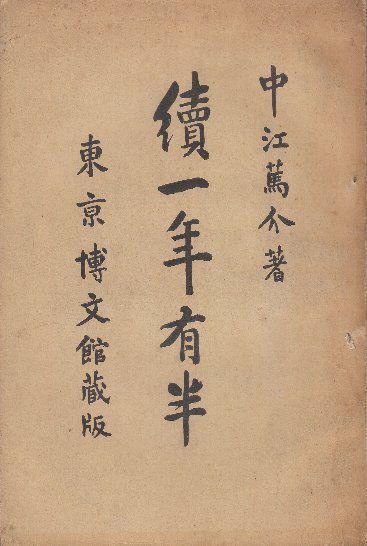 中江篤介著
續一年有半
東京博文館蔵版